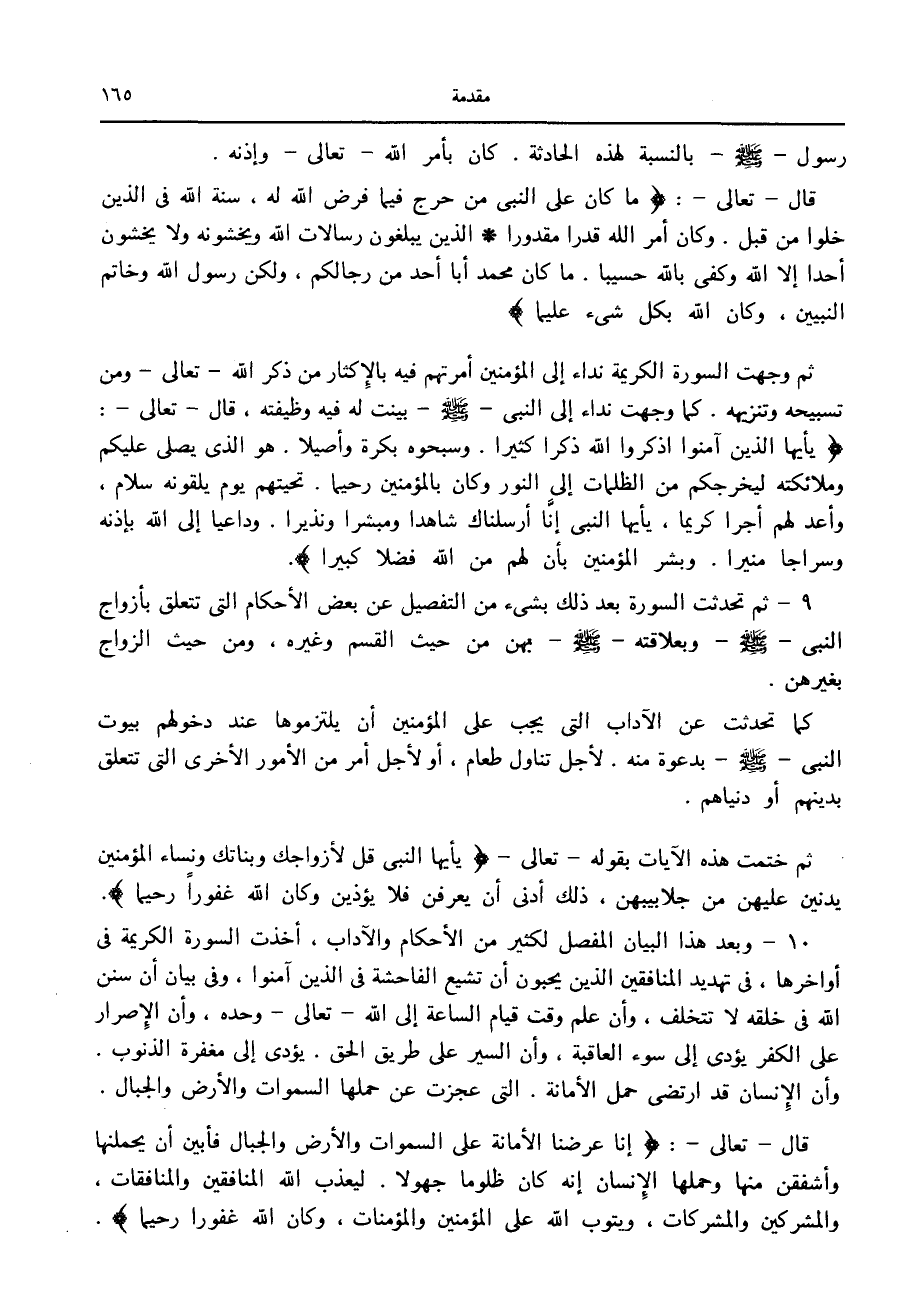 مقدمة ١٦٥
رسول - ﷺ - بالنسبة لهذه الحادثة . كان بأمر الله - تعالى - وإذنه .
قال - تعالى - : ﴿ ما كان على النبى من حرج فيما فرض الله له ، سنة الله فى الذين
خلوا من قبل . وكان أمر الله قدرا مقدورا * الذين يبلغون رسالات الله ويخشونه ولا يخشون
أحدا إلا الله وكفى بالله حسيبا . ما كان محمد أبا أحد من رجالكم ، ولكن رسول الله وخاتم
النبيين ، وكان الله بكل شىء عليما ﴾
ثم وجهت السورة الكريمة نداء إلى المؤمنين أمرتهم فيه بالإكثار من ذكر الله - تعالى - ومن
تسبيحه وتنزيهه . كما وجهت نداء إلى النبى - ﷺ - بينت له فيه وظيفته ، قال - تعالى - :
﴿ يأيها الذين آمنوا اذكروا الله ذكرا كثيرا . وسبحوه بكرة وأصيلا . هو الذى يصلى عليكم
وملائكته ليخرجكم من الظلمات إلى النور وكان بالمؤمنين رحيما . تحيتهم يوم يلقونه سلام ،
وأعد لهم أجرا كريما ، يأيها النبى إنَّا أرسلناك شاهدا ومبشرا ونذيرا . وداعيا إلى الله بإذنه
وسراجا منيرا . وبشر المؤمنين بأن لهم من الله فضلا كبيرا ﴾.
٩ - ثم تحدثت السورة بعد ذلك بشىء من التفصيل عن بعض الأحكام التى تتعلق بأزواج
النبى - ﷺ - وبعلاقته - ﷺ - بهن من حيث القسم وغيره ، ومن حيث الزواج
بغيرهن .
كما تحدثت عن الآداب التى يجب على المؤمنين أن يلتزموها عند دخولهم بيوت
النبى - ﷺ - بدعوة منه . لأجل تناول طعام ، أو لأجل أمر من الأمور الأخرى التى تتعلق
بدينهم أو دنياهم .
ثم ختمت هذه الآيات بقوله - تعالى - ﴿ يأيها النبى قل لأزواجك وبناتك ونساء المؤمنين
يدنين عليهن من جلابيبهن ، ذلك أدنى أن يعرفن فلا يؤذين وكان الله غفوراً رحيما ﴾.
١٠ - وبعد هذا البيان المفصل لكثير من الأحكام والآداب ، أخذت السورة الكريمة فى
أواخرها ، فى تهديد المنافقين الذين يحبون أن تشيع الفاحشة فى الذين آمنوا ، وفى بيان أن سنن
الله فى خلقه لا تتخلف ، وأن علم وقت قيام الساعة إلى الله - تعالى - وحده ، وأن الإصرار
على الكفر يؤدى إلى سوء العاقبة ، وأن السير على طريق الحق . يؤدى إلى مغفرة الذنوب .
وأن الإنسان قد ارتضى حمل الأمانة . التى عجزت عن حملها السموات والأرض والجبال .
قال - تعالى - : ﴿ إنا عرضنا الأمانة على السموات والأرض والجبال فأبين أن يحملنها
وأشفقن منها وحملها الإنسان إنه كان ظلوما جهولا . ليعذب الله المنافقين والمنافقات ،
والمشركين والمشركات ، ويتوب الله على المؤمنين والمؤمنات ، وكان الله غفورا رحيما ﴾ .